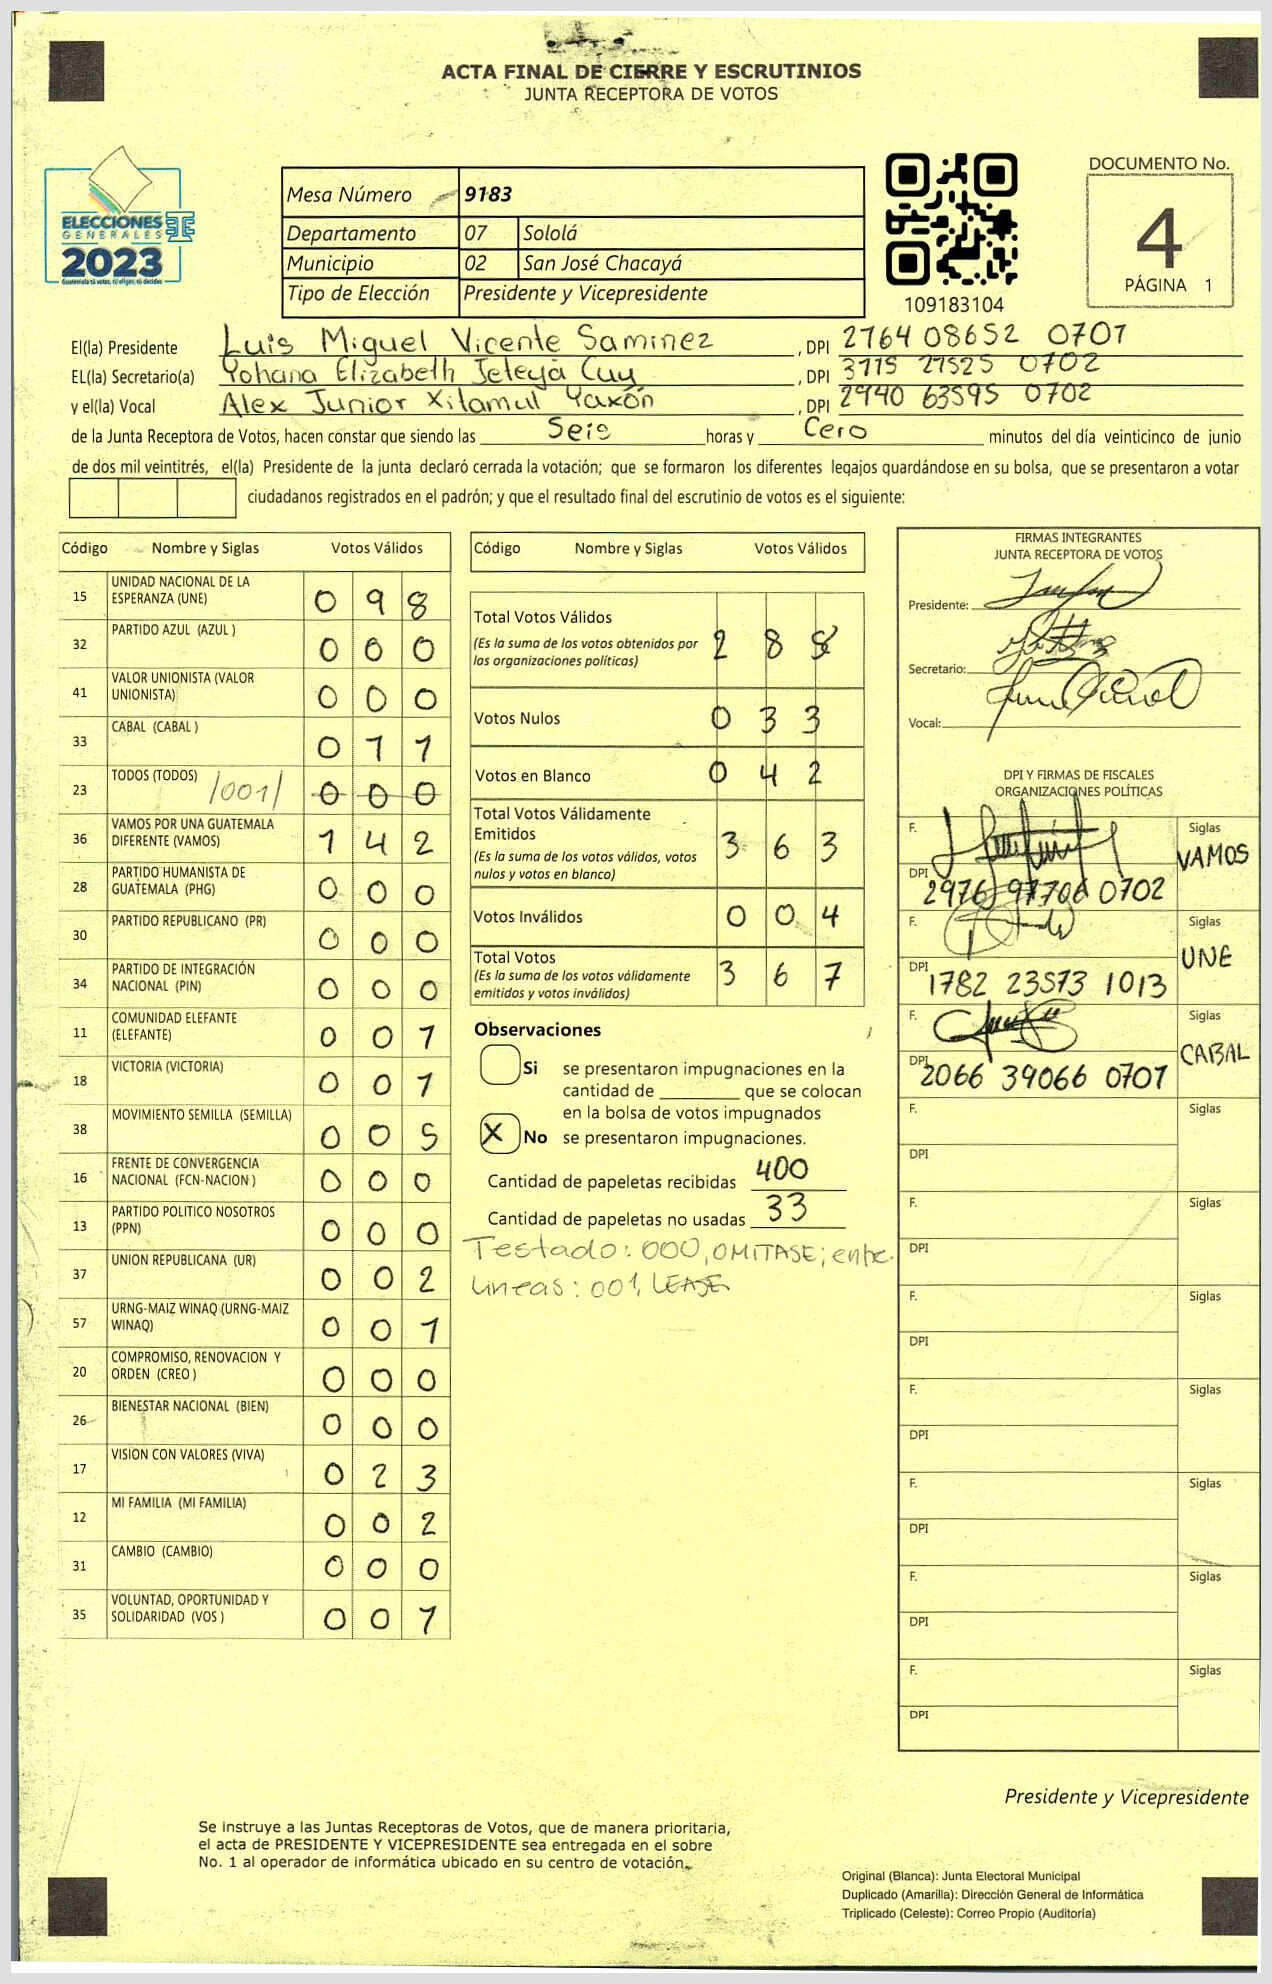 ACTA FINAL DE CIERRE Y ESCRUTINIOS
JUNTA RECEPTORA DE VOTOS
ELECCIONES
GENERALES
2023
Guatemala tú votas, tú eliges, tú decides
Mesa Número 9183
Departamento 07 Sololá
Municipio 02 San José Chacayá
Tipo de Elección Presidente y Vicepresidente
109183104
DOCUMENTO No.
4
PÁGINA 1
El(la) Presidente Luis Miguel Vicente Saminez, DPI 2764 08652 0701
EL(la) Secretario(a) Yohana Elizabeth Jeleyá Cuy, DPI 3115 27525 0702
y el(la) Vocal Alex Junior Xitamul Yaxón, DPI 2940 63595 0702
de la Junta Receptora de Votos, hacen constar que siendo las Seis horas y Cero minutos del día veinticinco de junio
de dos mil veintitrés, el(la) Presidente de la junta declaró cerrada la votación; que se formaron los diferentes legajos guardándose en su bolsa, que se presentaron a votar
ciudadanos registrados en el padrón; y que el resultado final del escrutinio de votos es el siguiente:
Código Nombre y Siglas Votos Válidos
15 UNIDAD NACIONAL DE LA ESPERANZA (UNE) 0 9 8
32 PARTIDO AZUL (AZUL ) 0 0 0
41 VALOR UNIONISTA (VALOR UNIONISTA) 0 0 0
33 CABAL (CABAL ) 0 1 1
23 TODOS (TODOS) /001/ 0 0 0
36 VAMOS POR UNA GUATEMALA DIFERENTE (VAMOS) 1 4 2
28 PARTIDO HUMANISTA DE GUATEMALA (PHG) 0 0 0
30 PARTIDO REPUBLICANO (PR) 0 0 0
34 PARTIDO DE INTEGRACIÓN NACIONAL (PIN) 0 0 0
11 COMUNIDAD ELEFANTE (ELEFANTE) 0 0 1
18 VICTORIA (VICTORIA) 0 0 1
38 MOVIMIENTO SEMILLA (SEMILLA) 0 0 5
16 FRENTE DE CONVERGENCIA NACIONAL (FCN-NACION ) 0 0 0
13 PARTIDO POLITICO NOSOTROS (PPN) 0 0 0
37 UNION REPUBLICANA (UR) 0 0 2
57 URNG-MAIZ WINAQ (URNG-MAIZ WINAQ) 0 0 1
20 COMPROMISO, RENOVACION Y ORDEN (CREO ) 0 0 0
26 BIENESTAR NACIONAL (BIEN) 0 0 0
17 VISION CON VALORES (VIVA) 0 2 3
12 MI FAMILIA (MI FAMILIA) 0 0 2
31 CAMBIO (CAMBIO) 0 0 0
35 VOLUNTAD, OPORTUNIDAD Y SOLIDARIDAD (VOS ) 0 0 1
Código Nombre y Siglas Votos Válidos
Total Votos Válidos 2 8 8
(Es la suma de los votos obtenidos por
las organizaciones políticas)
Votos Nulos 0 3 3
Votos en Blanco 0 4 2
Total Votos Válidamente
Emitidos 3 6 3
(Es la suma de los votos válidos, votos
nulos y votos en blanco)
Votos Inválidos 0 0 4
Total Votos 3 6 7
(Es la suma de los votos válidamente
emitidos y votos inválidos)
Observaciones
Si se presentaron impugnaciones en la
cantidad de ________ que se colocan
en la bolsa de votos impugnados
X No se presentaron impugnaciones.
Cantidad de papeletas recibidas 400
Cantidad de papeletas no usadas 33
Testado: 000, OMITASE; entre
lineas: 001, LEASE
FIRMAS INTEGRANTES
JUNTA RECEPTORA DE VOTOS
Presidente:
Secretario:
Vocal:
DPI Y FIRMAS DE FISCALES
ORGANIZACIONES POLÍTICAS
F. Siglas
VAMOS
DPI 2976 97706 0702
F. Siglas
UNE
DPI 1782 23573 1013
F. Siglas
CABAL
DPI 2066 39066 0701
F. Siglas
DPI
F. Siglas
DPI
F. Siglas
DPI
F. Siglas
DPI
F. Siglas
DPI
F. Siglas
DPI
F. Siglas
DPI
Presidente y Vicepresidente
Se instruye a las Juntas Receptoras de Votos, que de manera prioritaria,
el acta de PRESIDENTE Y VICEPRESIDENTE sea entregada en el sobre
No. 1 al operador de informática ubicado en su centro de votación.
Original (Blanca): Junta Electoral Municipal
Duplicado (Amarilla): Dirección General de Informática
Triplicado (Celeste): Correo Propio (Auditoría)